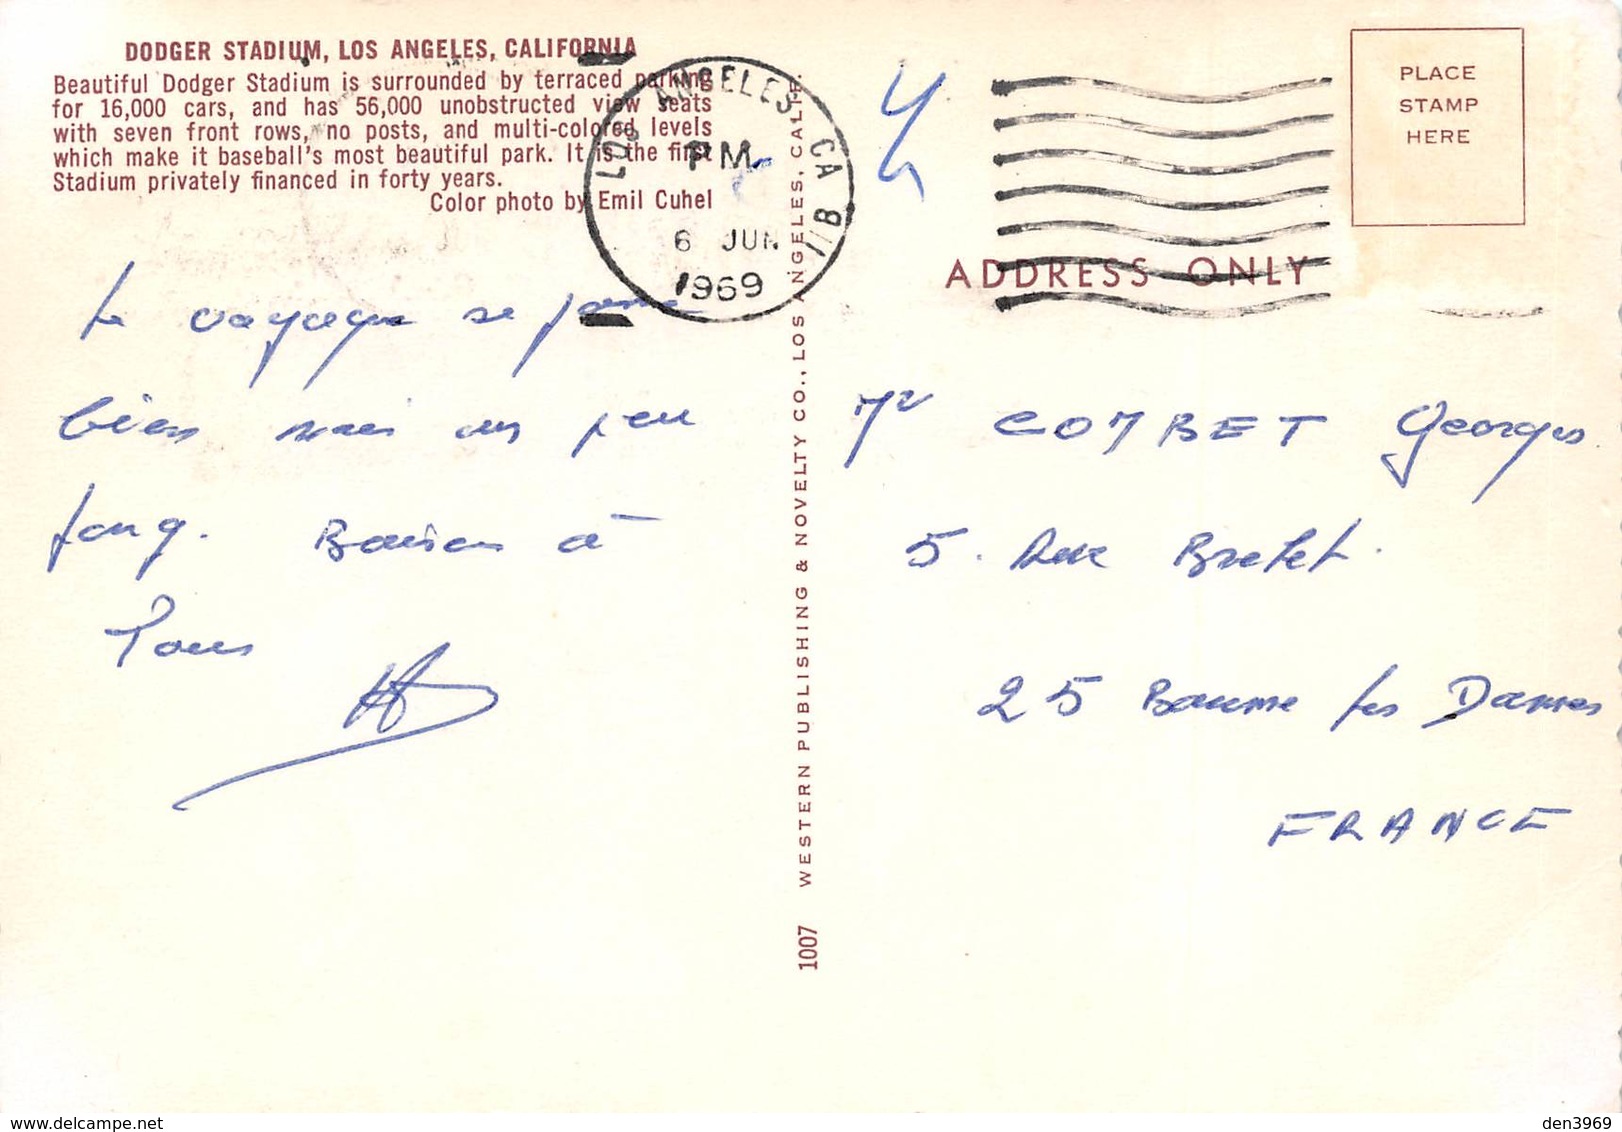 DODGER STADIUM, LOS ANGELES, CALIFORNIA
Beautiful Dodger Stadium is surrounded by terraced parking
for 16,000 cars, and has 56,000 unobstructed view seats
with seven front rows, no posts, and multi-colored levels
which make it baseball's most beautiful park. It is the first
Stadium privately financed in forty years.
Color photo by Emil Cuhel
LOS ANGELES, CA
PM
6 JUN
1969
Le voyage se passe
bien mais un peu
long. Baisers à
Tous
WESTERN PUBLISHING & NOVELTY CO., LOS ANGELES, CALIF.
1007
PLACE
STAMP
HERE
ADDRESS ONLY
Mr COMBET Georges
5. Rue Bretet.
25 Baume les Dames
FRANCE
den3969